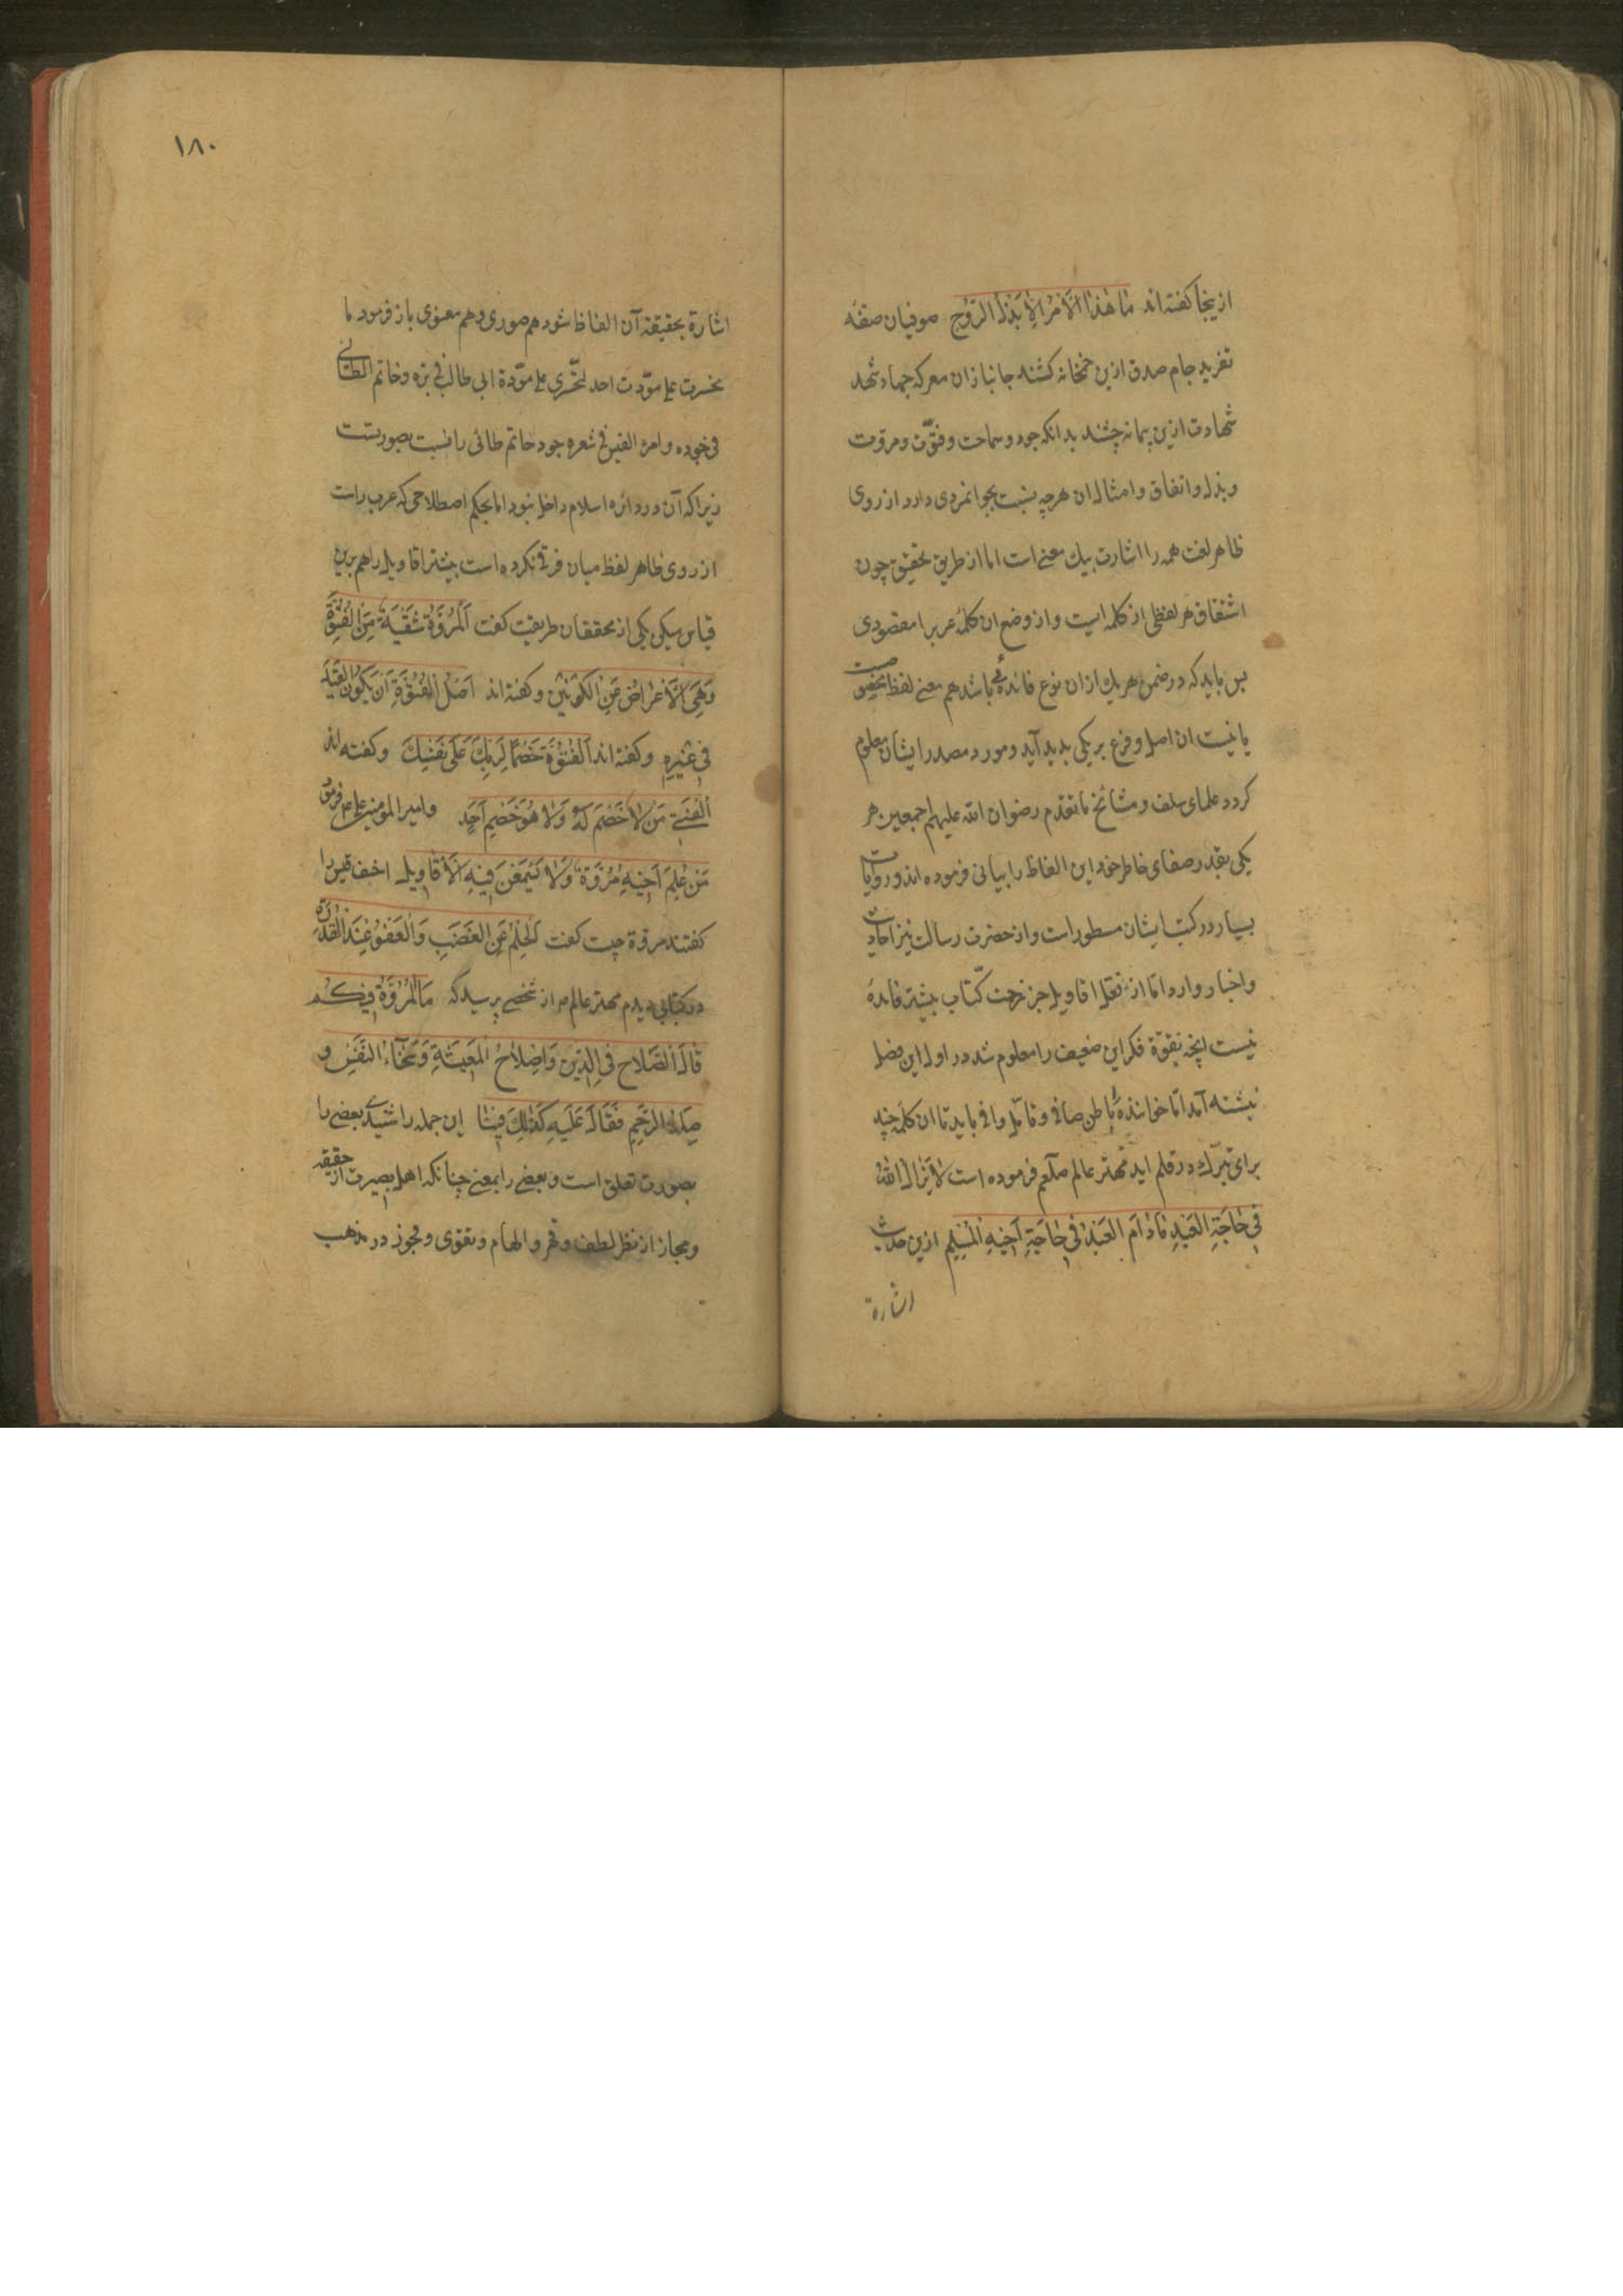 ازینجا کفته اند مٰا هٰذَا الْاَمْرُ اِلّا بَذْلُ الرُّوحِ صوفیان صفّه
تفرید جام صدق ازین خمخانه کشند جانبازان معرکه جهاد شهد
شهادت ازین پیمانه چشند بدانکه جود و سماحت و فتوّت و مروت
و بذل و انفاق و امثال ان هرچه نسبت بجوانمردی دارد از روی
ظاهر لغت همه را اشارت بیك معنی است اما از طریق تحقیق چون
اشتقاق هر لفظی از کلمه ایست و از وضع ان کلمه عرب را مقصودی
پس باید که در ضمن هر یك ازان نوع فائده باشد هم معنی لفظ
یا نیست ان اصل و فرع بر یکی بدید آید و مورد مصدر ایشان معلوم
کردد علمای سلف و مشائخ ما تقدم رضوان الله علیهم اجمعین هر
یکی بقدر صفای خاطر خود این الفاظ را بیانی فرموده اند و روایات
بسیار در کتب ایشان مسطور است و از حضرت رسالت نیز احادیث
و اخبار وارد امّا از نقل اقاویل جز کتاب بیشتر فائده
نیست انچه بقوّة فکر این ضعیف را معلوم شد در اول این فصل
نبشته آمد امّا خواننده باطن صافی و تأمّل وافی باید تا ان کلمه چند
برای تبرّك در قلم اید مهتر عالم صلعم فرموده است لا یَزٰالُ اللهُ
فی حٰاجَةِ العَبْدِ مٰادٰامَ العَبْدُ فی حٰاجَةِ اَخیهِ المُسْلِمِ ازین حدیث
اشارة
١٨٠
اشارة بحقیقة آن الفاظ شود هم صوری و هم معنوی باز فرمود ما
علی موّدت احد علی موّدة ابی طالب فی برّه و حاتم الطائی
فی جوده و امرء القیس فی شعره جود حاتم طائی را نسبت بصورتست
زیراکه آن در دائره اسلام داخل نبود اما بحکم اصطلاحی که عرب راست
از روی ظاهر لفظ میان فرقی نکرده است بیشتر اقاویل را هم برین
قیاس میکن یکی از محققان طریقت کفت اَلْمُرُوَّةُ شُعْبَةٌ مِنَ الْفُتُوَّةِ
وَهِیَ الْاِعْرٰاضُ مِنَ الْکَوْنَیْنِ و کفته اند اَصْلُ الْفُتُوَّةِ اَنْ یَکُونَ الْعَبْدُ
فی غَیْرِهِ و کفته اند اَلْفُتُوَّةُ خَصْماً لِرَبِّكَ عَلٰی نَفْسِكَ و کفته اند
اَلْفَتٰی مَنْ لاٰ خَصْمَ لَهُ وَلاٰ هُوَ خَصْمُ اَحَدٍ و امیر المومنین علی فرمود
مَنْ عَلِمَ اَخیهِ مُرُوَّةً وَلاٰ فیهِ الْاَقاویلَ احنف قیس را
کفتند مروّة چیست کفت اَلْحِلْمُ عَنِ الْغَضَبِ وَالْعَفْوُ عِنْدَ الْقُدْرَةِ
در کتابی دیدم مهتر عالم از شخصی پرسید که مَا الْمُرُوَّةُ فیکُمْ
قٰالَ الصَّلاٰحُ فی الدّینِ وَاِصْلاٰحُ الْمَعیشَةِ وَسَخٰآءُ النَّفْسِ و
صِلَةُ الرَّحِمِ فَقٰالَ عَلَیْهِ کَذٰلِكَ فینٰا این جمله را شنیدی بعضی را
بصورت تعلق است و بعضی را بمعنی چنانکه اهل بصیرت از حقیقة
و مجاز از نظر لطف و قهر و الهام و تقوی و فجوز در مذهب